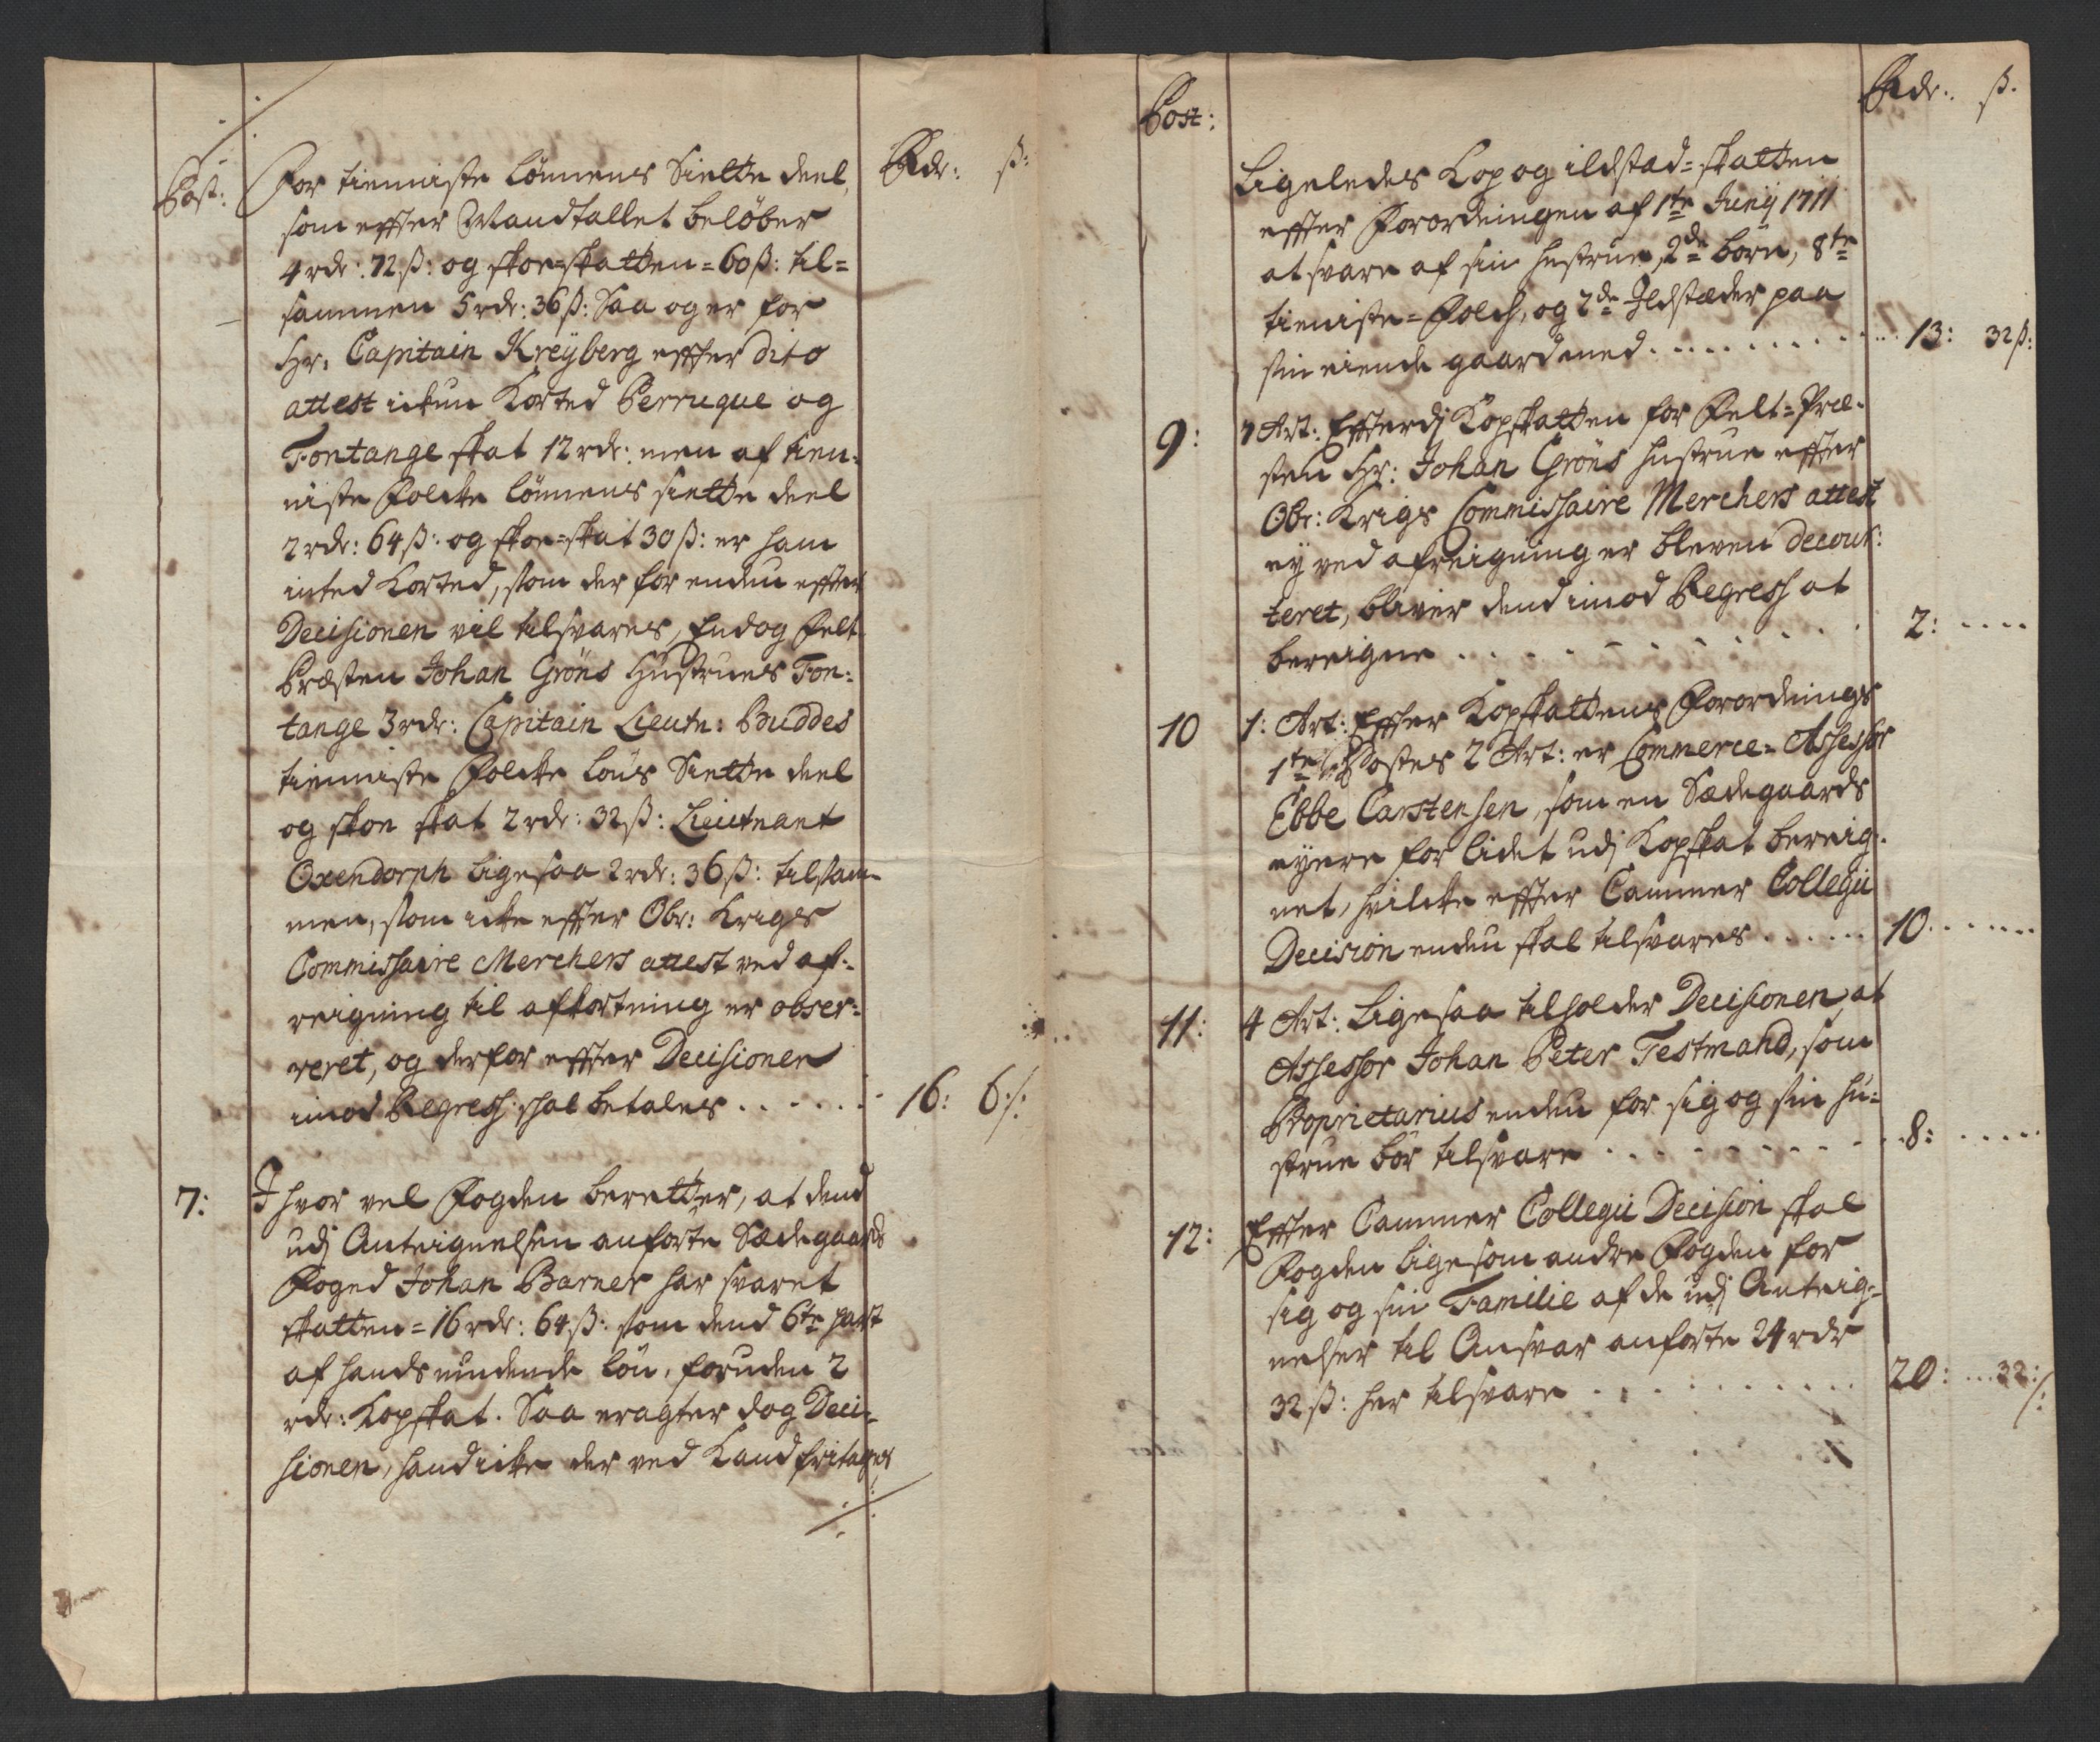 Post:
Rdr: ß:
For tienniste lönnens Siette deel,
som effter Mandtallet belöber
4 rdr: 72 ß: og skoe=skatten = 60 ß: til=
sammen 5 rdr: 36 ß: Saa og er for
Hr: Capitain Kreÿberg effter dito
attest ickun Korted Perruque og
Fontange skat 12 rdr: men af tien:
niste Folcke lönnens siette deel
2 rdr: 64 ß: og skoe=skat 30 ß: er ham
inted Korted, som der for endnu effter
Decisionen vil tilsvares, Endog Felt
Præsten Johan Gröns Hustrues Fon:
tange 3 rdr: Capitain Lieutn: Buddes
tienniste Folcke löns Siette deel
og skoe skat 2 rdr: 32 ß: Lieutnant
Oxendorph ligesaa 2 rdr: 36 ß: tilsam-
men, som icke effter Obr: Krigs
Commissaire Merchers attest ved af:
reigning til afkortning er obser:
veret, og derfor effter Decisionen
imod Regress skal betales . . . . . . 16: 6 ./.
7: Ihvor vel Fogden beretter, at dend
udj Anteignelsen anförte Sædegaards
Foged Johan Barner har svaret
skatten = 16 rdr: 64 ß: som dend 6te part
af hands nydende lön, foruden 2
rdr: Kopskat. Saa eragter dog Deci-
sionen, hand icke der ved Kand fritages
./.
Post:
Rdr: ß.
Ligeledes Kop og ildstad=skatten
effter Forordningen af 1te Junij 1711
at svare af sin hustrue, 2de börn, 8te
tieniste=Folch, og 2de Ildstæder paa
sin eiende gaard med . . . . . . . . . 13: 32 ß:
9: 7 Art: Efterdj Kopskatten for Felt=Præ-
sten Hr: Johan Gröns hustrue effter
Obr: Krigs Commissaire Merchers attest
ey ved afreigning er bleven decour:
teret, bliver dend imod Regress at
bereigne . . . . . . . . . 2: . . . .
10 1: Art: Effter Kopskattens Forordnings
1te Postes 2 Art: er Commerce=Assessor
Ebbe Carstensen, som en Sædegaards
eyere for lidet udj Kopskat bereig-
net, hvilcke effter Cammer Collegii
Decision endnu skal tilsvares . . . . . . 10 . . . . . .
11: 4 Art: Ligesaa tilholder Decisionen, at
Assessor Johan Peter Testmand, som
Proprietarius endnu for sig og sin hu=
strue bör tilsvare . . . . . . . . . 8: . . . . .
12: Effter Cammer Collegii Decision skal
Fogden ligesom andre Fogder for
sig og sin Familie af de udj Anteig:
nelser til Ansvar anförte 24 rdr
32 ß: her tilsvare . . . . . . . . . 20: . . . 32: ./.